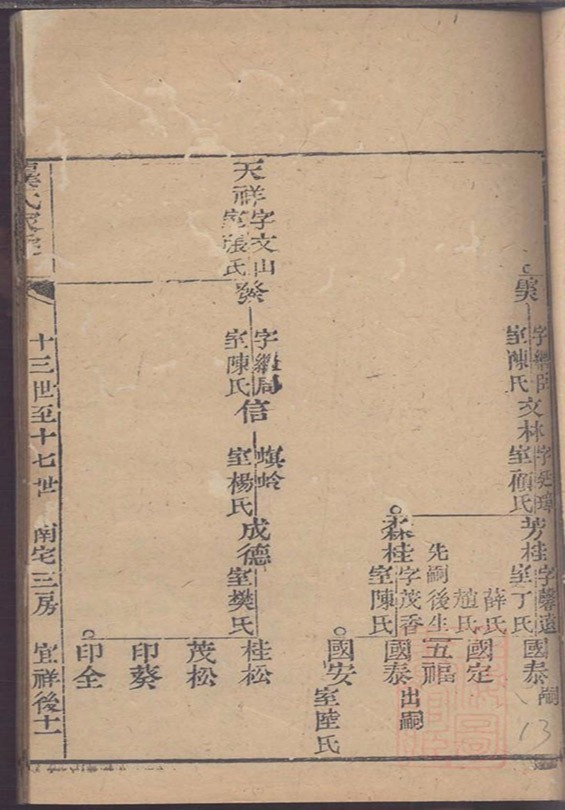 字樂
室陳氏
文林
室顧氏
芳桂
字馨遠
室丁氏
薛氏
趙氏
先嗣後生
國泰
嗣
國定
五福
森桂
字茂香
室陳氏
國泰
出嗣
國安
室陸氏
天祥
字文山
室張氏
發
字繼
室陳氏
信
螟蛉
室楊氏
成德
室樊氏
桂松
茂松
印葵
印全
十三世至十七世
南宅三房
宜祥後十一
13